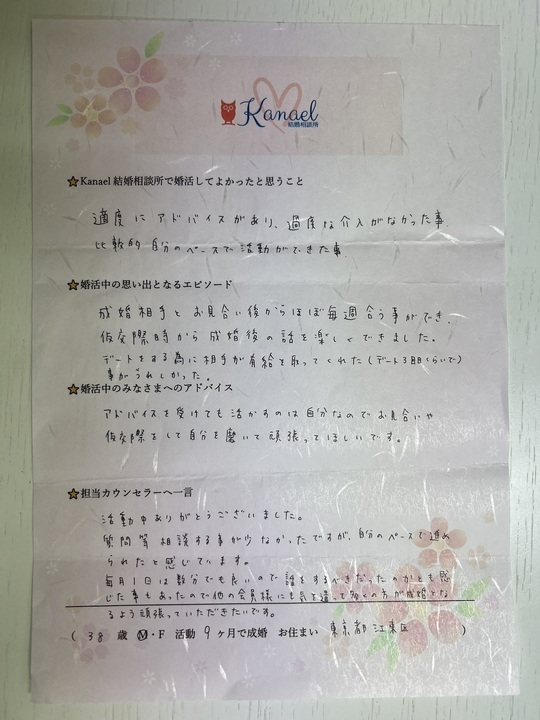 Kanael
結婚相談所
Kanael 結婚相談所で婚活してよかったと思うこと
適度にアドバイスがあり、過度な介入がなかった事
比較的自分のペースで活動ができた事
婚活中の思い出となるエピソード
成婚相手とお見合い後からほぼ毎週会う事ができ、
仮交際時から成婚後の話を楽しくできました。
デートをする為に相手が有給を取ってくれた(デート3回目くらいで)
事がうれしかった。
婚活中のみなさまへのアドバイス
アドバイスを受けても活かすのは自分なのでお見合いや
仮交際をして自分を磨いて頑張ってほしいです。
担当カウンセラーへ一言
活動中ありがとうございました。
質問等相談する事が少なかったですが、自分のペースで進め
られたと感じています。
毎月1回は数分でも良いので話をするべきだったのかとも感
じた事もあったので他の会員様にも気を遣って多くの方が成婚とな
るよう頑張っていただきたいです。
( 38 歳 M・F 活動 9 ヶ月で成婚 お住まい 東京都江東区 )